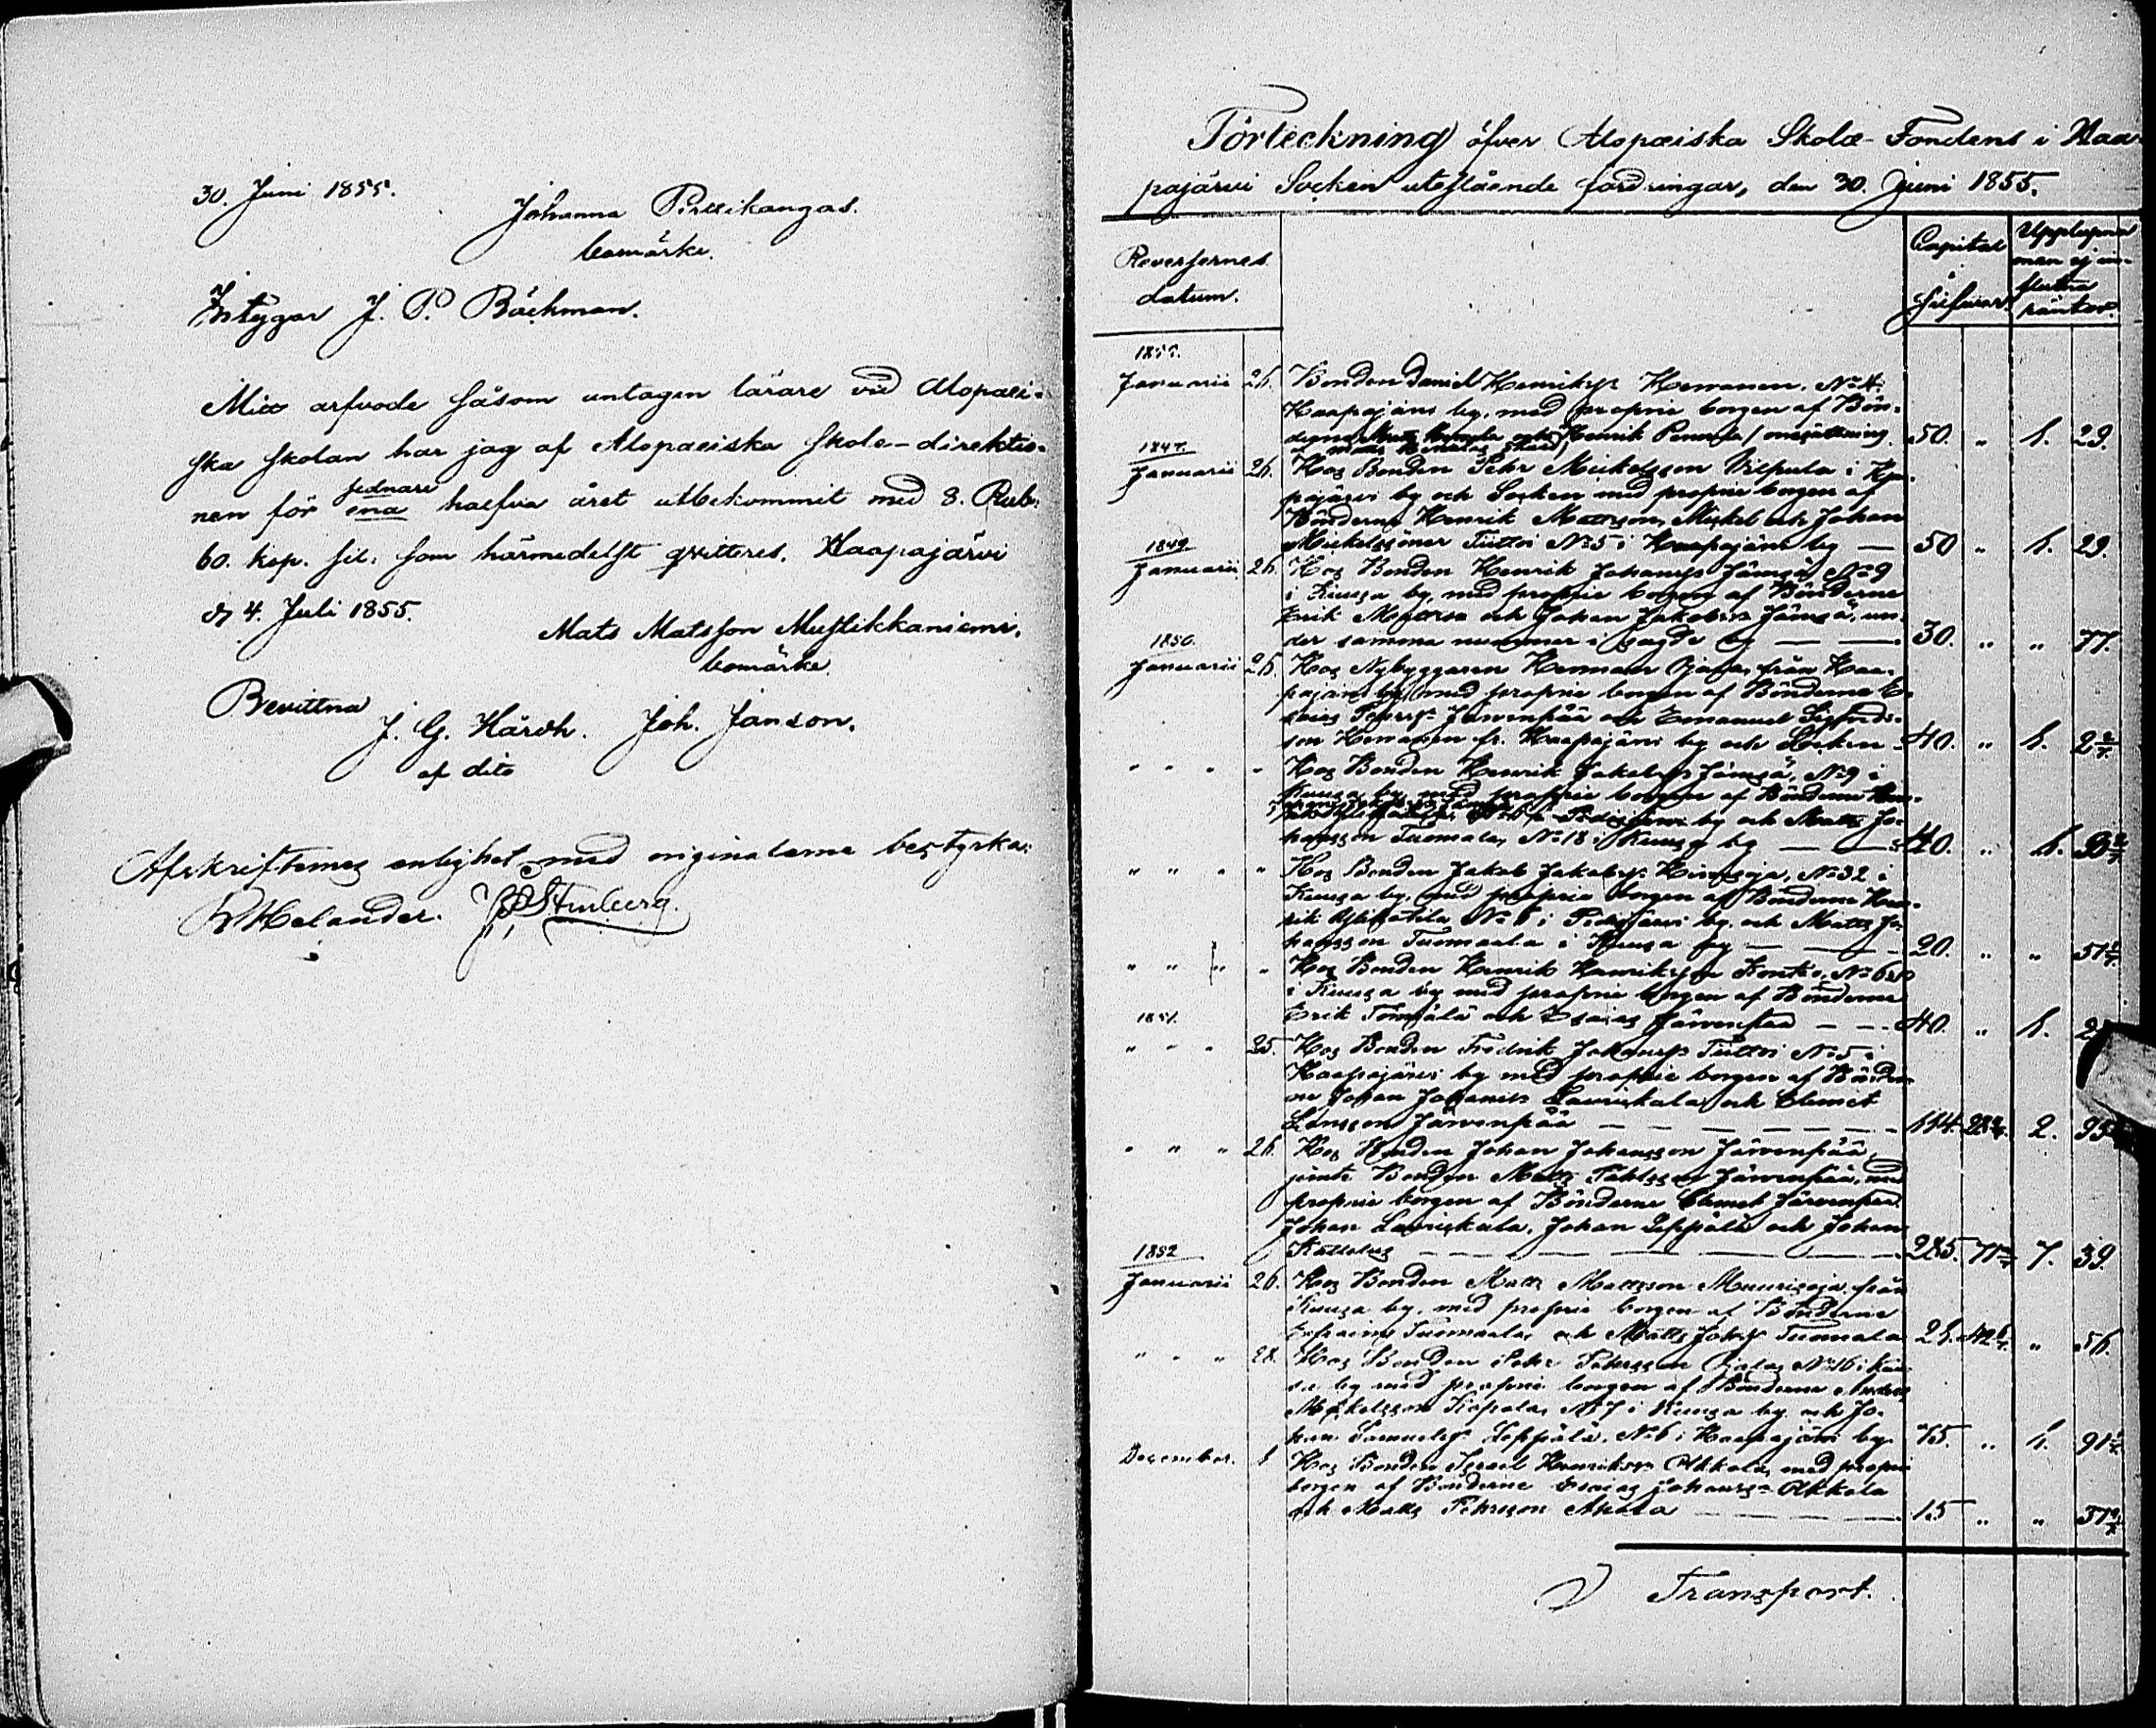 30. Juni 1855.
Johanna Pirttikangas.
bomärke.
Intygar J. P. Bäckman.
Mitt arfvode såsom antagen lärare vid Alopaei-
ska skolan har jag af Alopaeiska skole-direktio-
sednare
nen för ena halfva året utbekommit med 8. Rub.
60. kop. sil: som härmedelst qvitteras. Haapajärvi
d. 4. Juli 1855.
Mats Matsson Mustikkaniemi.
bomärke.
Bevittna
J. G. Hårdh. Joh. Janson.
af dito
Afskrifternes enlighet med originalerne bestyrka:
Helander. Stenberg.
Förteckning öfver Alopæiska Skolæ-Fondens i Haa-
pajärvi Socken utestående fordringar, den 30. Juni 1855.
Reversernes
datum.
Capital
silfver.
Upplupna
men ej in-
flutna
räntor.
1855.
Januarii 26. Bonden Daniel Henriksson Hernanen. No 4.
Haapajärvi by, med proprie borgen af Bön-
derne Henrik omsättning 50. " 1. 29.
1847.
Januarii 26. Hos Bonden Petr Mickelsson Vilpula i Haa-
pajärvi by och Socken med proprie borgen af
Bönderne Henrik Mattsson, Mickel och Johan
Mickelssöner Tiitto No 5 i Haapajärvi by — 50 " 1. 29.
1849
Januarii 26. Hos Bonden Henrik Johansson Jämsä No 9
i Kuusa by, med proprie borgen af Bönderne
Erik och Johan Jakobsson Jämsä, un-
der samma nummer i sagde by — — 30. " " 77.
1850.
Januarii 26. Hos Nybyggaren Herman Ojala, från Haa-
pajärvi by, med proprie borgen af Bönderne E-
saias Järvenpää och Emanuel Sigfrids-
son Hernanen fr. Haapajärvi by och Socken - 40. " 1. 2
" " " " Hos Bonden Henrik Jakobsson Jämsä, No 9 i
Kuusa by, med proprie borgen af Bönderne Hen-
by och Matts Jo-
hansson Tuomala, No 18 i Kuusa by — — 40. " 1.
" " " " Hos Bonden Jakob Jakobsson Hirvioja, No 32 i
Kuusa by, med proprie borgen af Bönderne Hen-
rik No 6 i Pidisjärvi by. och Matts Jo-
hansson Tuomaala i Kuusa by — — 20. " " 51
" " " " Hos Bonden Henrik Henriksson Kontio, No 6
i Kuusa by med proprie borgen af Bönderne
Erik och Esaias Järvenpää — — 40. " 1.
1851.
" " " 25. Hos Bonden Fredrik Johansson Tiitto No 5 i
Haapajärvi by med proprie borgen af Bönder-
ne Johan Johansson Lauriskala och Clemet
Larsson Järvenpää — — — — 114. 2.
" " " 26. Hos Bonden Johan Johansson Järvenpää
jemte Bonden Matts Järvenpää, med
proprie borgen af Bönderne Clemet Järvenpää
Johan Lauriskala, Johan Leppälä och Johan
— — — — 285. 71 7. 39.
1852
Januarii 26. Hos Bonden Matts Mattsson Muurisoja från
Kuusa by, med proprie borgen af Bönderne
Efraim Tuomaala och Matts Johsson Tuomala 21. 42 " 56.
" " " 28. Hos Bonden Petr Petersson Ojala No 16 i Kuu-
sa by med proprie borgen af Bönderne Anders
Mickelsson No 7 i Kuusa by och Jo-
han Samuelsson Leppälä. No 6 i Haapajärvi by. 75. " 1. 91
December. 1 Hos Bonden Israel Henriksson Akkola, med proprie
borgen af Bönderne Esaias Johansson Akkola
och Matts Petersson — — 15 " "
Transport.